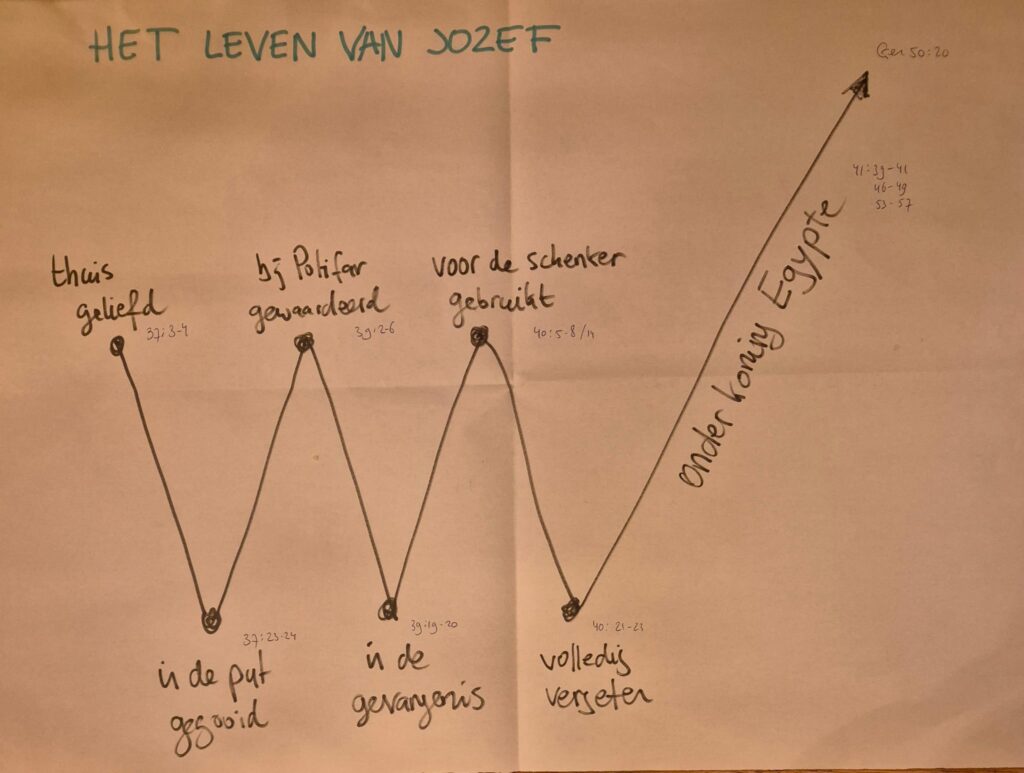 HET LEVEN VAN JOZEF
Gen 50:20
41:39-41
46-49
53-57
thuis
geliefd
37:3-4
bij Potifar
gewaardeerd
39:2-6
voor de schenker
gebruikt
40:5-8/14
onder koning Egypte
37:23-24
in de put
gegooid
39:19-20
in de
gevangenis
40:21-23
volledig
vergeten